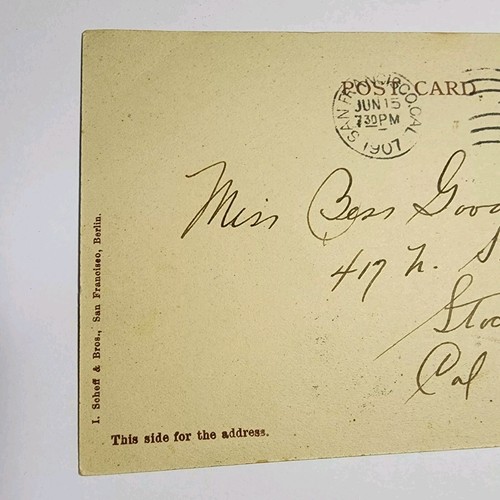 POST CARD
SAN FRANCISCO, CAL.
JUN 15
7 30 PM
1907
Miss Bess
417 N.
Cal
I. Scheff & Bros., San Francisco, Berlin.
This side for the address.